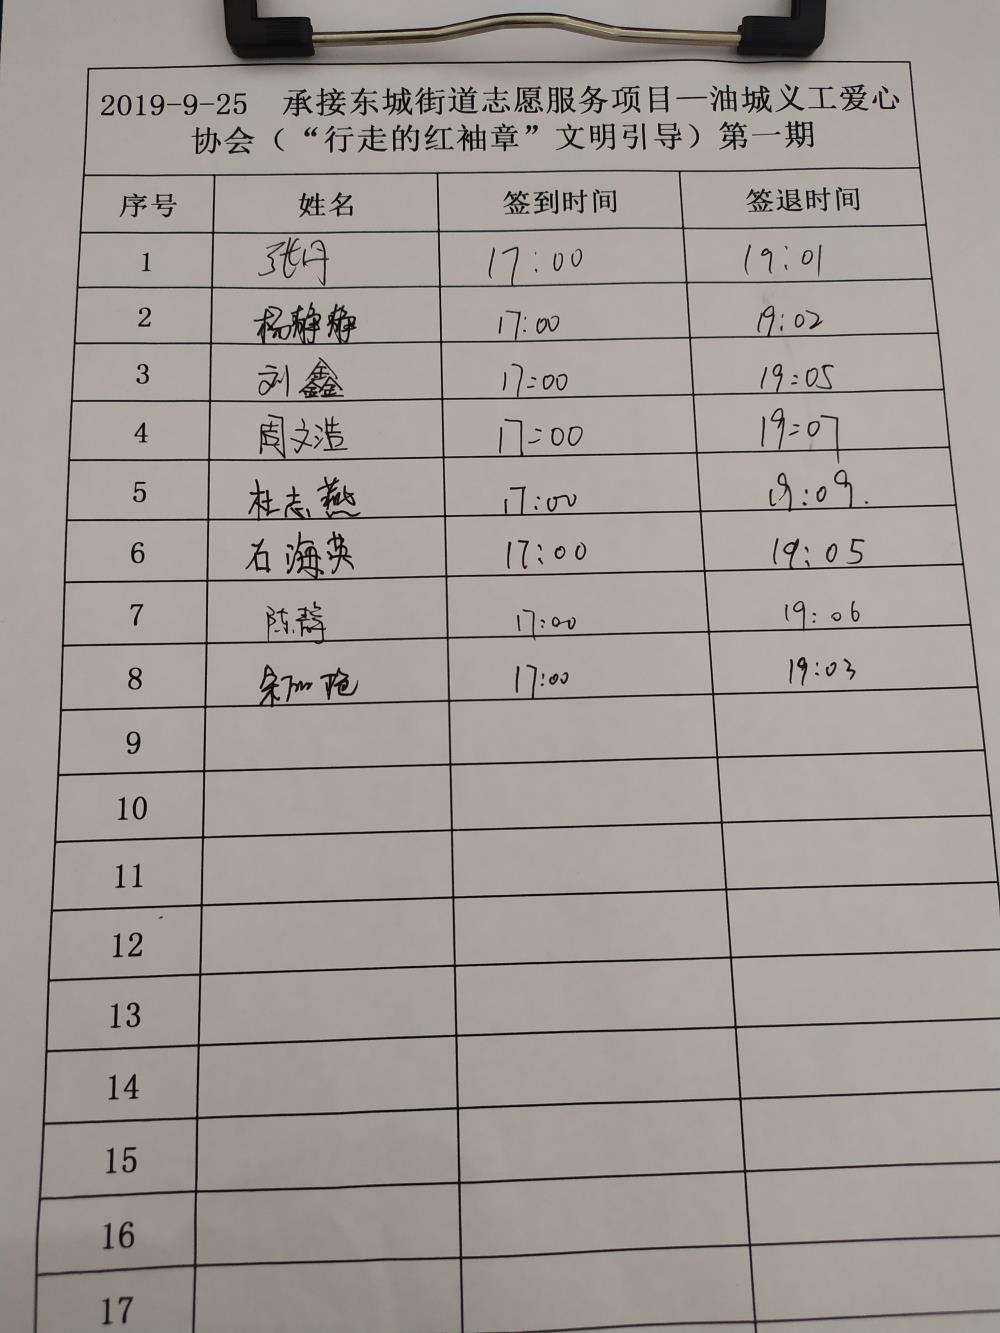 2019-9-25 承接东城街道志愿服务项目—油城义工爱心
协会（“行走的红袖章”文明引导）第一期
序号 姓名 签到时间 签退时间
1 张丹 17:00 19:01
2 杨静静 17:00 19:02
3 刘鑫 17:00 19:05
4 周文浩 17:00 19:07
5 杜志燕 17:00 19:09.
6 石海英 17:00 19:05
7 陈静 17:00 19:06
8 17:00 19:03
9
10
11
12
13
14
15
16
17